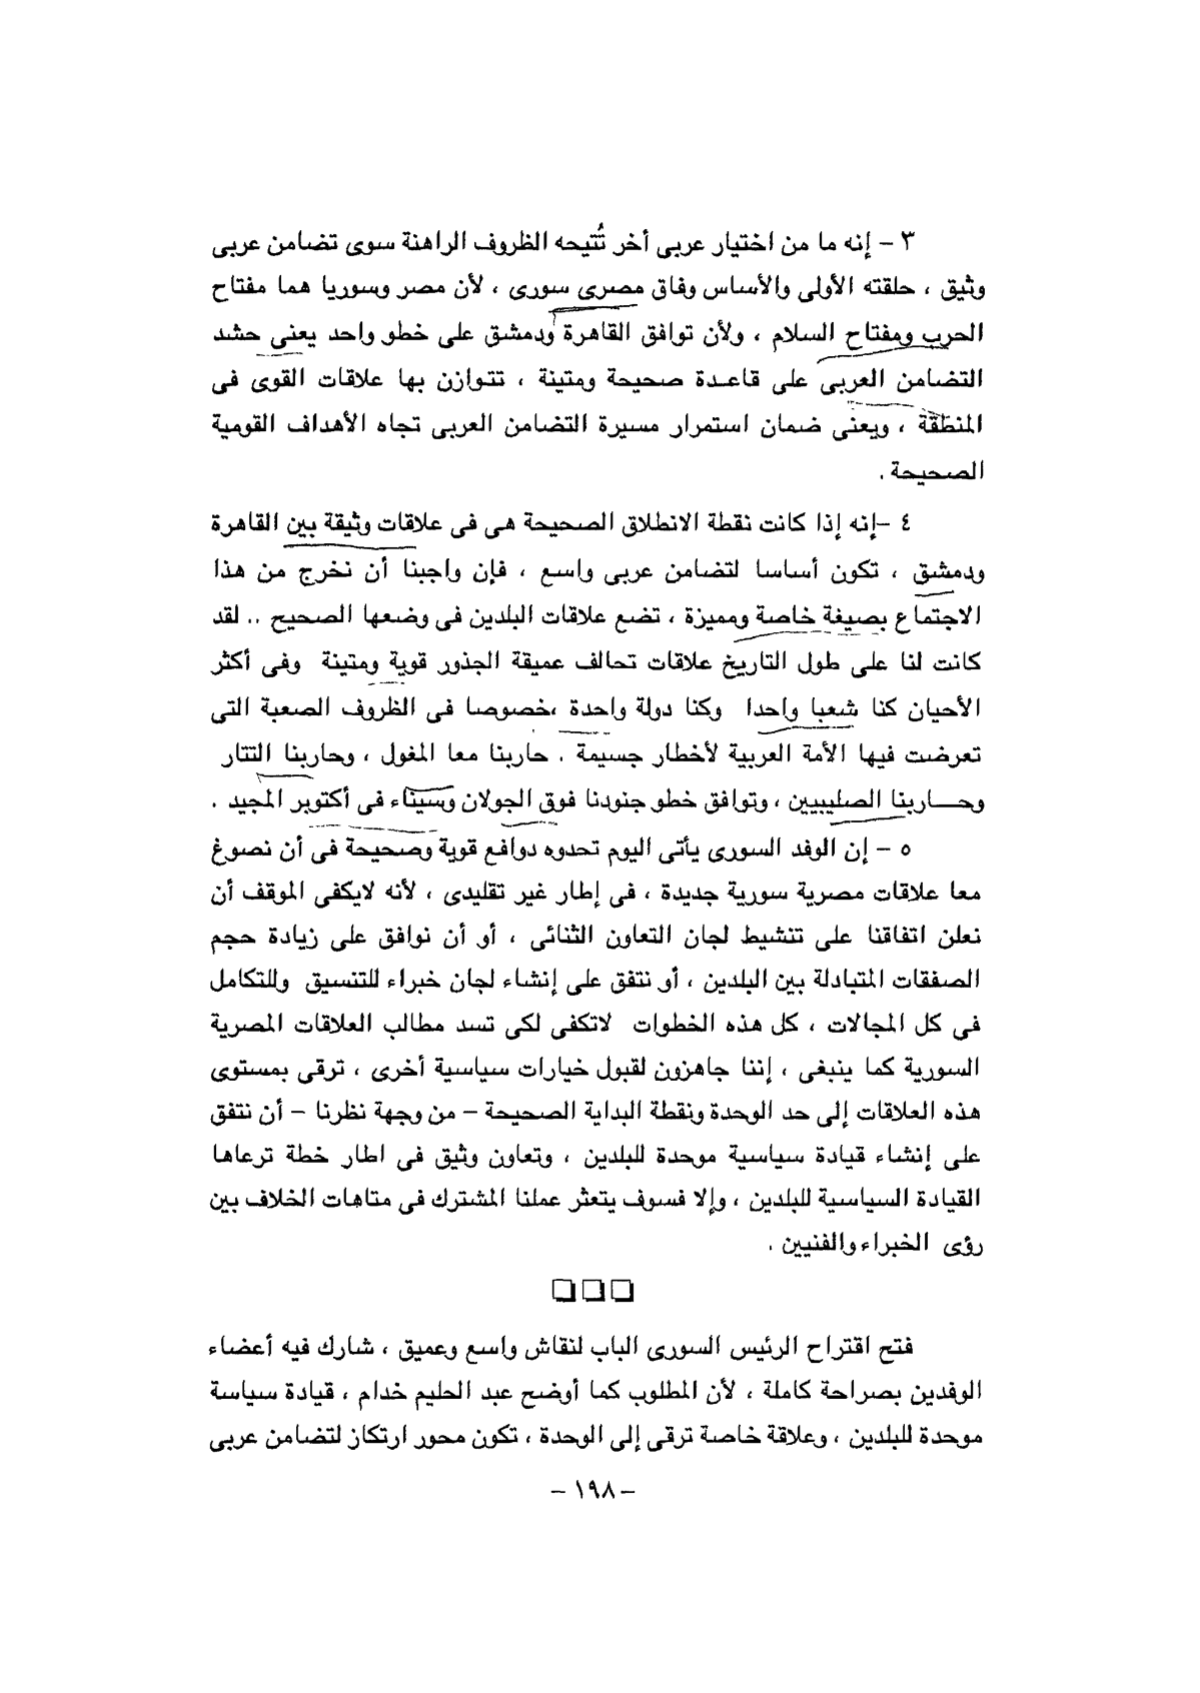 ٣ – إنه ما من اختيار عربى أخر تُتيحه الظروف الراهنة سوى تضامن عربى
وثيق ، حلقته الأولى والأساس وفاق مصرى سورى ، لأن مصر وسوريا هما مفتاح
الحرب ومفتاح السلام ، ولأن توافق القاهرة ودمشق على خطو واحد يعنى حشد
التضامن العربى على قاعدة صحيحة ومتينة ، تتوازن بها علاقات القوى فى
المنطقة ، ويعنى ضمان استمرار مسيرة التضامن العربى تجاه الأهداف القومية
الصحيحة .
٤ –إنه إذا كانت نقطة الانطلاق الصحيحة هى فى علاقات وثيقة بين القاهرة
ودمشق ، تكون أساسا لتضامن عربى واسع ، فإن واجبنا أن نخرج من هذا
الاجتماع بصيغة خاصة ومميزة ، تضع علاقات البلدين فى وضعها الصحيح .. لقد
كانت لنا على طول التاريخ علاقات تحالف عميقة الجذور قوية ومتينة وفى أكثر
الأحيان كنا شعبا واحدا وكنا دولة واحدة ،خصوصا فى الظروف الصعبة التى
تعرضت فيها الأمة العربية لأخطار جسيمة . حاربنا معا المغول ، وحاربنا التتار
وحـــاربنا الصليبيين ، وتوافق خطو جنودنا فوق الجولان وسيناء فى أكتوبر المجيد .
٥ – إن الوفد السورى يأتى اليوم تحدوه دوافع قوية وصحيحة فى أن نصوغ
معا علاقات مصرية سورية جديدة ، فى إطار غير تقليدى ، لأنه لايكفى الموقف أن
نعلن اتفاقنا على تنشيط لجان التعاون الثنائى ، أو أن نوافق على زيادة حجم
الصفقات المتبادلة بين البلدين ، أو نتفق على إنشاء لجان خبراء للتنسيق وللتكامل
فى كل المجالات ، كل هذه الخطوات لاتكفى لكى تسد مطالب العلاقات المصرية
السورية كما ينبغى ، إننا جاهزون لقبول خيارات سياسية أخرى ، ترقى بمستوى
هذه العلاقات إلى حد الوحدة ونقطة البداية الصحيحة – من وجهة نظرنا – أن نتفق
على إنشاء قيادة سياسية موحدة للبلدين ، وتعاون وثيق فى اطار خطة ترعاها
القيادة السياسية للبلدين ، وإلا فسوف يتعثر عملنا المشترك فى متاهات الخلاف بين
رؤى الخبراء والفنيين .
❑❑❑
فتح اقتراح الرئيس السورى الباب لنقاش واسع وعميق ، شارك فيه أعضاء
الوفدين بصراحة كاملة ، لأن المطلوب كما أوضح عبد الحليم خدام ، قيادة سياسة
موحدة للبلدين ، وعلاقة خاصة ترقى إلى الوحدة ، تكون محور ارتكاز لتضامن عربى
– ١٩٨ –